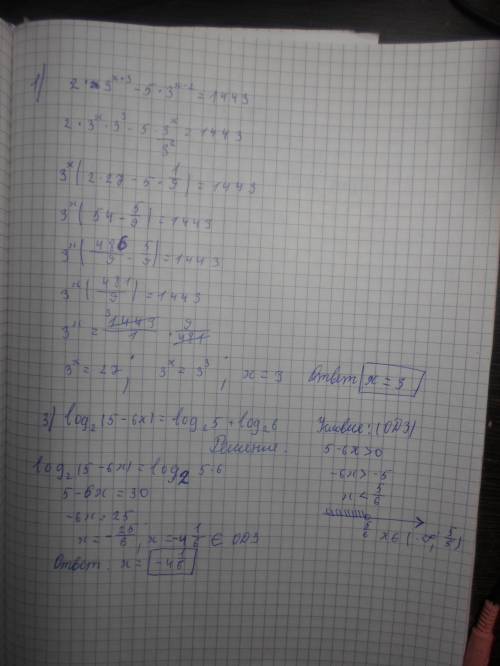 1) 2·3^(x+3) - 5·3^(x-2) = 1443
2·3^x·3^3 - 5·3^x/3^2 = 1443
3^x (2·27 - 5·1/9) = 1443
3^x (54 - 5/9) = 1443
3^x (486/9 - 5/9) = 1443
3^x (481/9) = 1443
3^x = 1443/1 · 9/481
3^x = 27; 3^x = 3^3; x = 3 Ответ x = 3
3) log₂(5-6x) = log₂5 + log₂6 Условие: (ОДЗ)
Решение: 5-6x>0
log₂(5-6x) = log₂ 5·6 -6x>-5
5-6x = 30 x < 5/6
-6x = 25 5/6
x = -25/6, x = -4 1/6 ∈ ОДЗ x ∈ (-∞; 5/6)
Ответ: x = -4 1/6